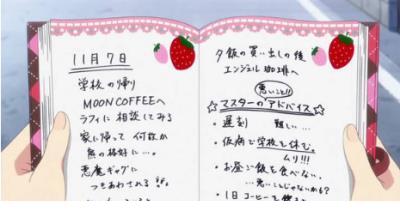 11月7日
学校の帰り
MOON COFFEEへ
ラフィに相談してみる
家に帰って 何故か
熊の格好に…。
悪魔ギャグに
つきあわされる
夕飯の買い出しの後
エンジェル珈琲へ
悪いこと!!
☆マスターのアドバイス☆
・遅刻 難しい…
・仮病で学校を休む。
ムリ!!!
・お昼ご飯を食べない。
…悪いことじゃないかも?
・1日コーヒーを